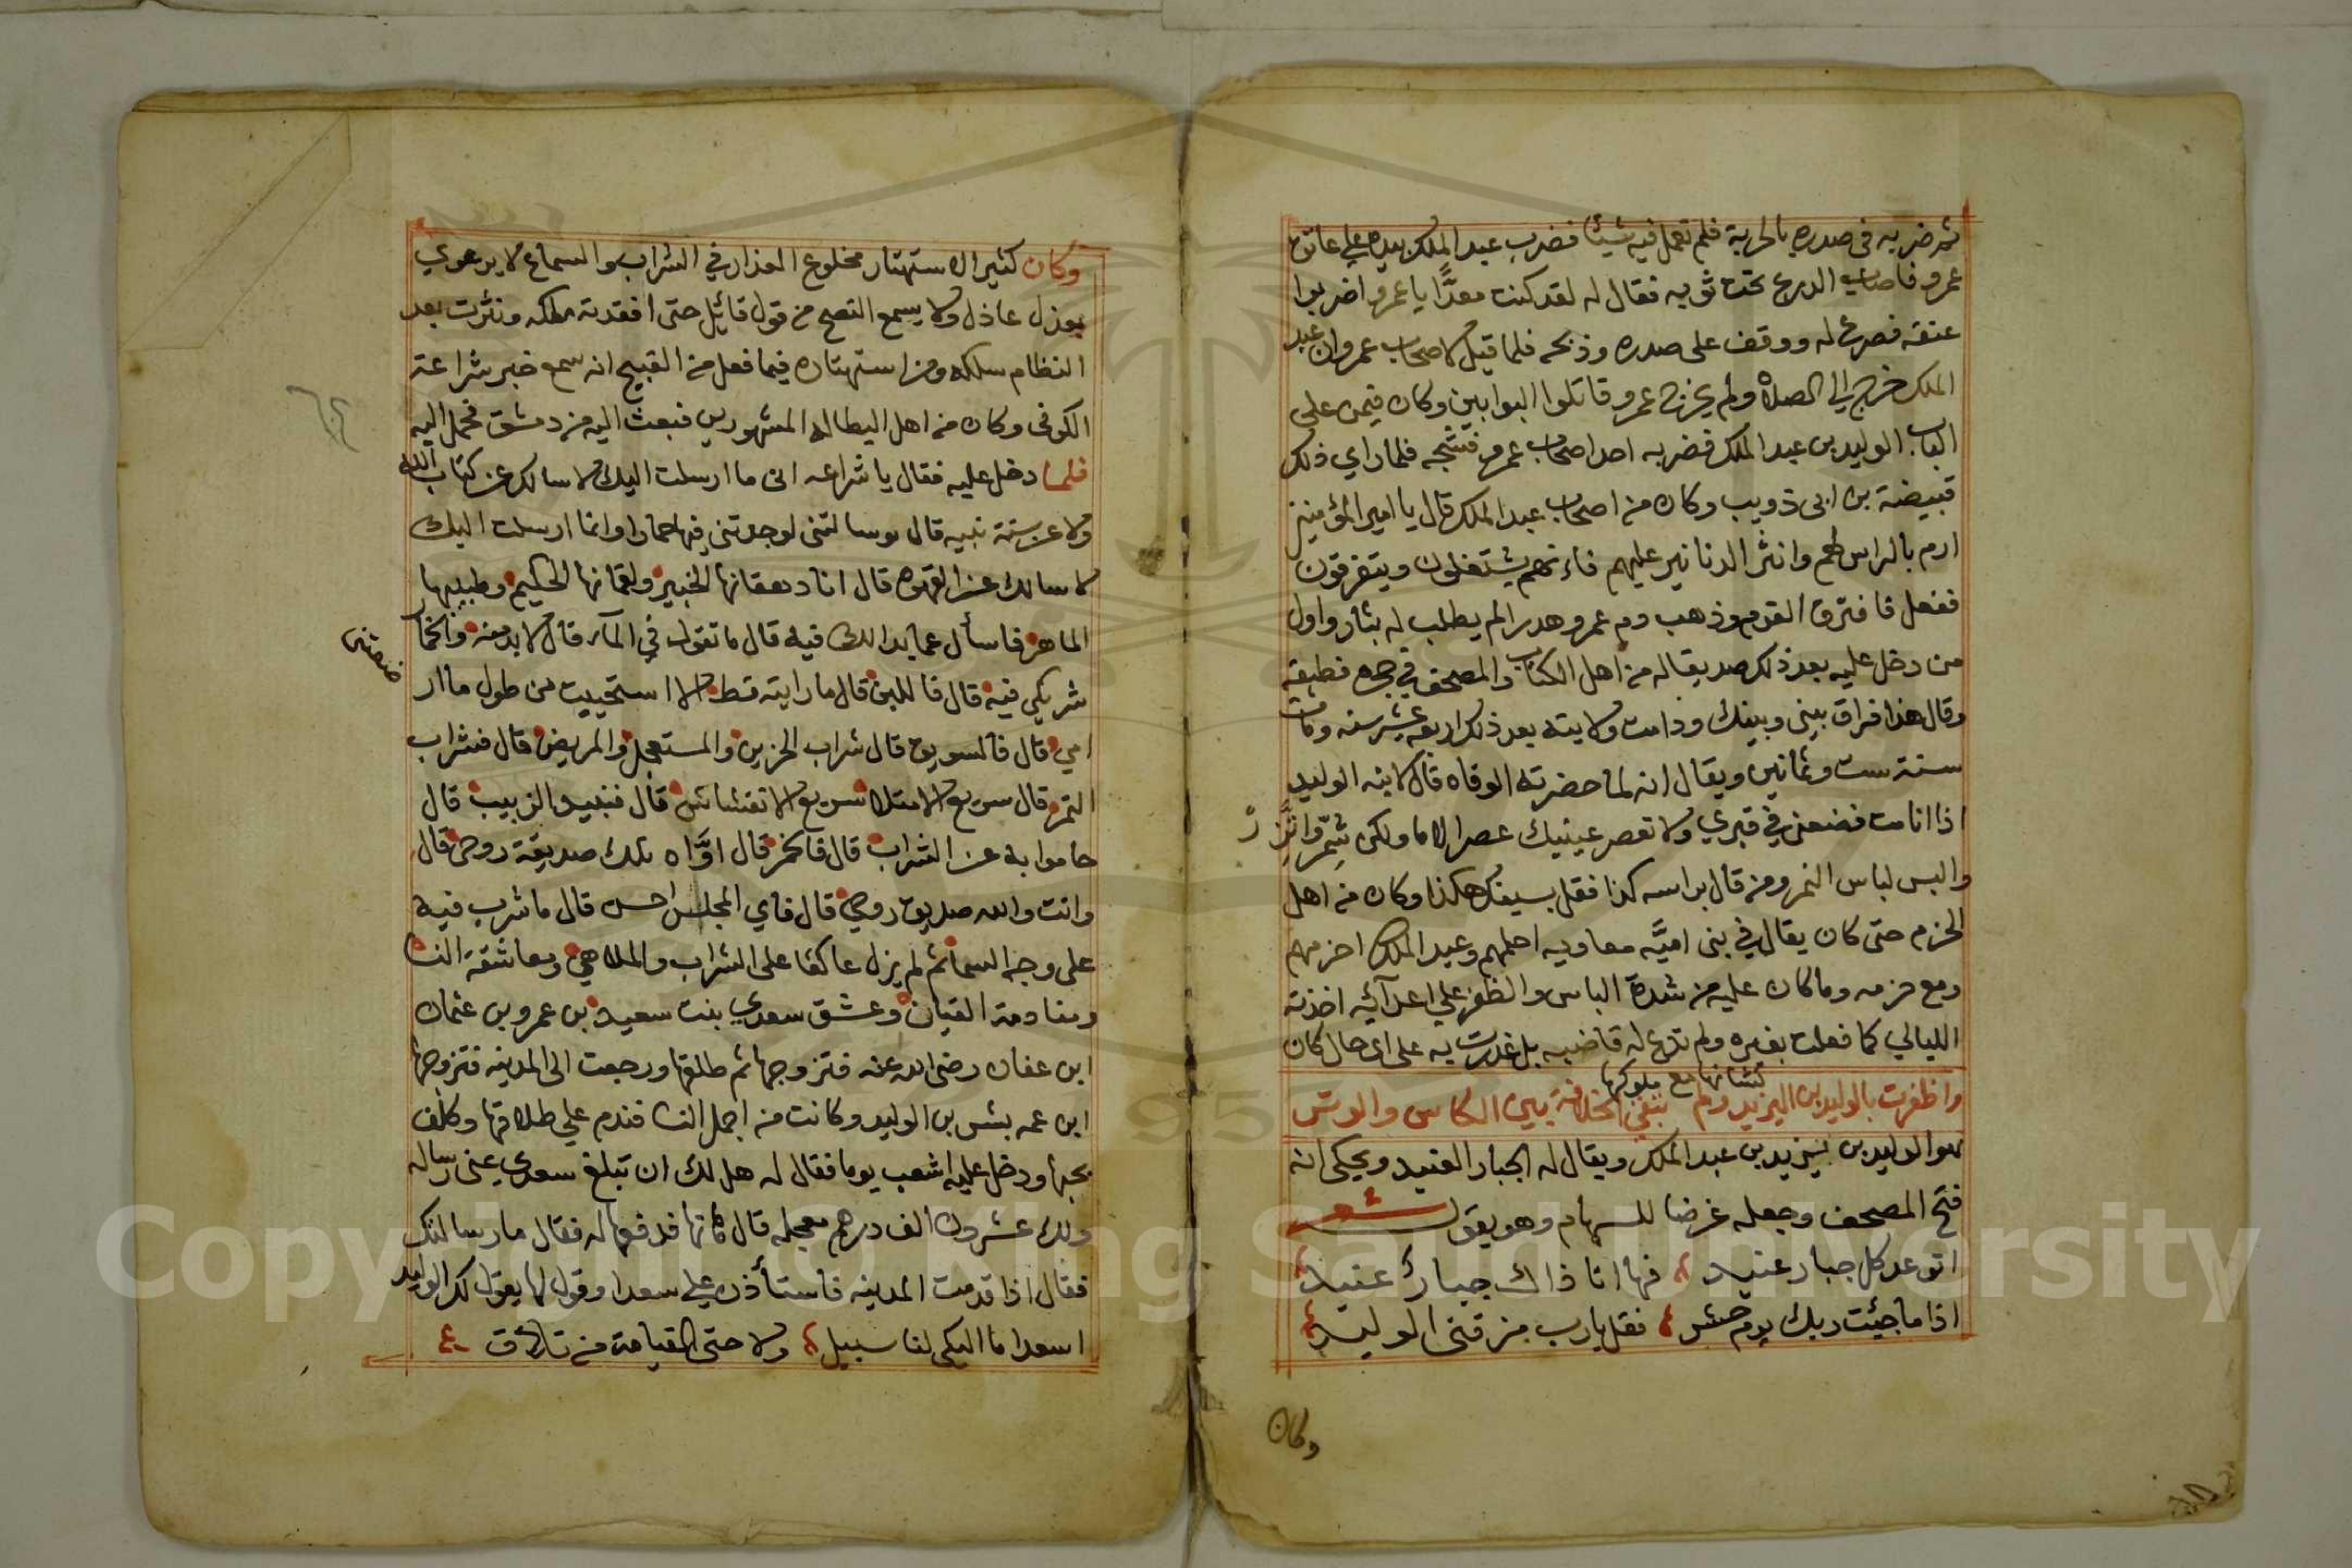 ثم ضربه في صدره بالحربة فلم تعمل فيه شيئا فضرب عبد الملك بيده على عاتق
عمرو فاصاب الدرع تحت ثوبه فقال له لقد كنت معدًّا يا عمرو اضربوا
عنقه فصرع له ووقف على صدره وذبحه فلما قيل لاصحاب عمرو ان عبد
الملك خرج الي الصلاة ولم يخرج عمرو قاتلوا البوابين وكان فيمن على
الباب الوليد بن عبد الملك فضربه احد اصحاب عمرو فشجه فلما راي ذلك
قبيضة بن ابى ذويب وكان من اصحاب عبد الملك قال يا امير المؤمنين
ارم بالراس لهم وانثر الدنانير عليهم فانهم يشتغلون ويتفرقون
ففعل فافترق القوم وذهب دم عمرو هدرا لم يطلب له بثار واول
من دخل عليه بعد ذلك صديقا له من اهل الكتاب والمصحف في حجره فطبقه
وقال هذا فراق بيني وبينك ودامت ولايته بعد ذلك اربعة عشر سنه ومات
سنة ست وثمانين ويقال انه لما حضرته الوفاه قال لابنه الوليد
اذا انا مت فضعني في قبري ولا تعصر عينيك عصر الاما ولكن شمّر واتزر
والبس لباس النمر ومن قال براسه كذا فقل بسيفك هكذا وكان من اهل
الحزم حتى كان يقال في بنى اميَّه معاويه احلمهم وعبد الملك احزمهم
ومع حزمه وما كان عليه من شدة الباس والظفر علي اعدآئه اخذته
الليالي كما فعلت بغيره ولم تدع له قاضبه بل غدرت به على اى حال كان
كشانها مع ملوكها
واظفرت بالوليد بن اليزيد ولم تبقي الخلافة بين الكاس والوتر
هو الوليد بن يزيد بن عبد الملك ويقال له الجبار العنيد ويحكى انه
فتح المصحف وجعله غرضا للسهام وهو يقول شعر
اتوعد كل جبار عنيد فها انا ذاك جبار عنيد
اذا ما جئت ربك يوم حشر فقل يا رب مزقني الوليد
وكان
وكان كثير الاستهتار مخلوع العذار في الشراب والسماع لا يرعوي
بعذل عاذل ولا يسمع النصح من قول قائل حتى افقدته ملكه ونثرت بعد
النظام سلكه ومن استهتاره فيما فعل من القبيح انه سمع خبر شراعة
الكوفى وكان من اهل البطاله المشهورين فبعث اليه من دمشق فحمل اليه
فلما دخل عليه فقال يا شراعه انى ما ارسلت اليك لاسالك عن كتاب الله
ولا عن سنة نبيه قال لو سالتنى لوجدتنى فيها حمارا وانما ارسلت اليك
لاسالك عن القهوه قال انا دهقانها الخبير ولقمانها الحكيم وطبيبها
الماهر فاسأل عما بدا لك فيه قال ما تقول في المآء قال لابد منه والحمار
شريكي فيه قال فاللبن قال ما رايته قط الا استحييت من طول ما ار
ضعتنى
امي قال فالسويق قال شراب الحزين والمستعجل والمريض قال فشراب
التمر قال سريع الامتلاء سريع الانفشاش قال فنبيد الزبيب قال
حاموا به عن الشراب قال فالخمر قال اوَّاه تلك صديقة روحى قال
وانت والله صديق روحي قال فاي المجلس احسن قال ما شرب فيه
على وجه السما ثم لم يزل عاكفا على الشراب والملاهي ومعاشقة النسا
ومنادمة القيان وعشق سعدي بنت سعيد بن عمرو بن عثمان
ابن عفان رضى الله عنه فتزوجها ثم طلقها ورجعت الى المدينه فتزوجها
ابن عمه بشر بن الوليد وكانت من اجمل النسا فندم علي طلاقها وكلف
بحبها ودخل عليه اشعب يوما فقال له هل لك ان تبلغ سعدى عنى رساله
ولك عشرون الف درهم معجله قال هاتها فدفعها له فقال ما رسالتك
فقال اذا قدمت المدينه فاستأذن علي سعدا وقول لها يقول لك الوليد
اسعدا ما اليكى لنا سبيل ولا حتى القيامة من تلاق